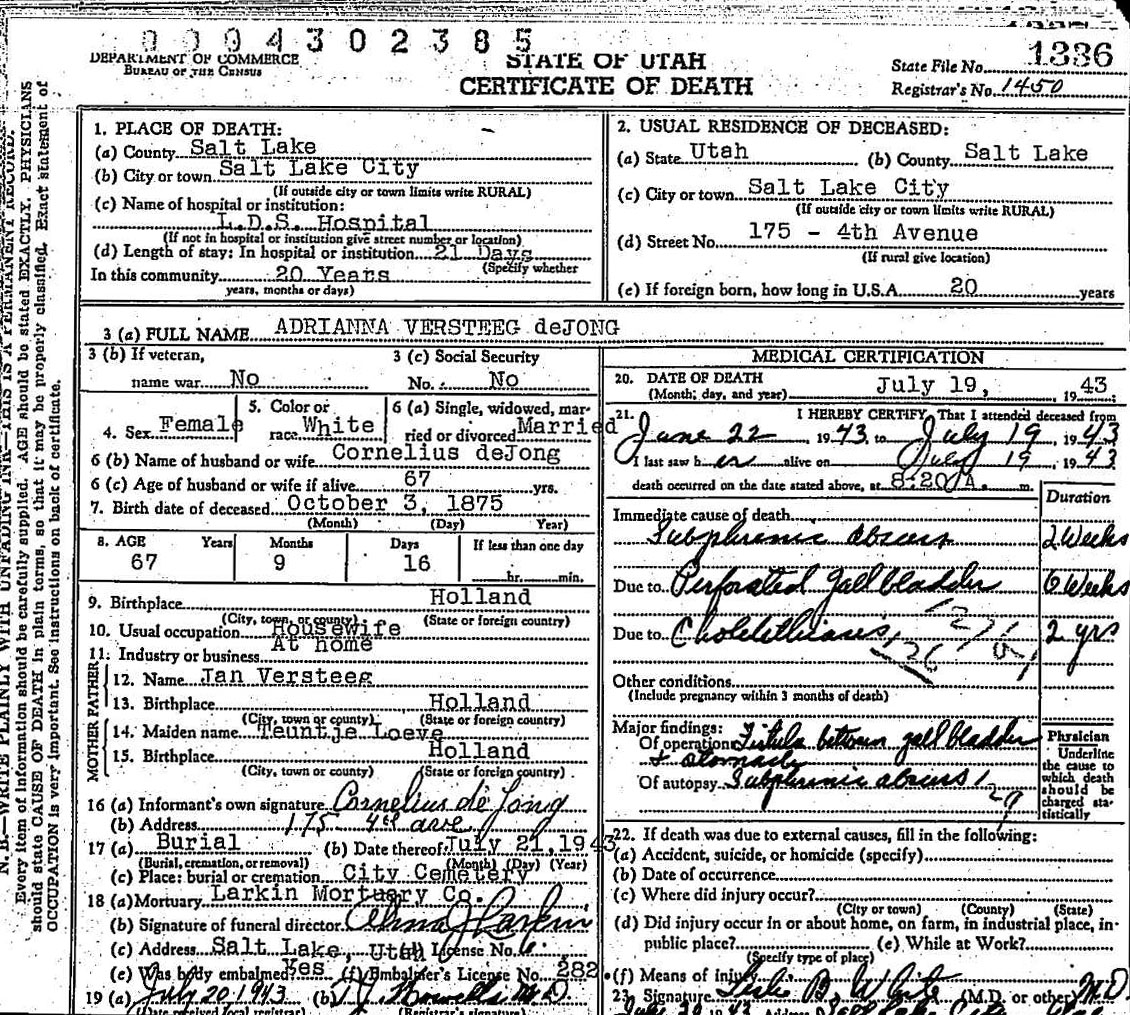 0 0 0 4 3 0 2 3 8 5
DEPARTMENT OF COMMERCE
BUREAU OF THE CENSUS
STATE OF UTAH
CERTIFICATE OF DEATH
State File No. 1336
Registrar's No. 1450
N. B.—WRITE PLAINLY WITH UNFADING INK—THIS IS A PERMANENT RECORD.
Every item of information should be carefully supplied. AGE should be stated EXACTLY. PHYSICIANS
should state CAUSE OF DEATH in plain terms, so that it may be properly classified. Exact statement of
OCCUPATION is very important. See instructions on back of certificate.
1. PLACE OF DEATH:
(a) County Salt Lake
(b) City or town Salt Lake City
(If outside city or town limits write RURAL)
(c) Name of hospital or institution:
L.D.S. Hospital
(If not in hospital or institution give street number or location)
(d) Length of stay: In hospital or institution 21 Days
(Specify whether
In this community 20 Years
years, months or days)
2. USUAL RESIDENCE OF DECEASED:
(a) State Utah (b) County Salt Lake
(c) City or town Salt Lake City
(If outside city or town limits write RURAL)
(d) Street No. 175 - 4th Avenue
(If rural give location)
(e) If foreign born, how long in U.S.A. 20 years
3 (a) FULL NAME ADRIANNA VERSTEEG deJONG
3 (b) If veteran,
name war No
3 (c) Social Security
No. No
4. Sex Female
5. Color or
race White
6 (a) Single, widowed, mar-
ried or divorced Married
6 (b) Name of husband or wife Cornelius deJong
6 (c) Age of husband or wife if alive 67 yrs.
7. Birth date of deceased October 3, 1875
(Month) (Day) Year)
8. AGE Years Months Days If less than one day
67 9 16 hr. min.
9. Birthplace Holland
(City, town, or county) (State or foreign country)
10. Usual occupation Housewife
11. Industry or business At home
FATHER
12. Name Jan Versteeg
13. Birthplace Holland
(City, town or county) (State or foreign country)
MOTHER
14. Maiden name Teuntje Loeve
15. Birthplace Holland
(City, town or county) (State or foreign country)
16 (a) Informant's own signature Cornelius de Jong
(b) Address 175 4th ave
17 (a) Burial (b) Date thereof July 21, 1943
(Burial, cremation, or removal) (Month) (Day) (Year)
(c) Place: burial or cremation City Cemetery
18 (a) Mortuary Larkin Mortuary Co.
(b) Signature of funeral director Alma J Larkin
(c) Address Salt Lake, Utah License No. 6
(e) Was body embalmed? Yes (f) Embalmer's License No. 282
19 (a) July 20, 1943 (b) T J Howells M.D.
(Date received local registrar) (Registrar's signature)
MEDICAL CERTIFICATION
20. DATE OF DEATH
(Month, day, and year) July 19, 19 43
21. I HEREBY CERTIFY, That I attended deceased from
June 22, 1943, to July 19, 1943
I last saw her alive on July 19, 1943
death occurred on the date stated above, at 8:20 A. m.
Duration
Immediate cause of death
Subphrenic abscess 2 Weeks
Due to Perforated gall bladder 6 Weeks
Due to Cholelithiases 2 yrs
127
126
Other conditions
(Include pregnancy within 3 months of death)
Major findings:
Of operation Fistula between gall bladder
& stomach
Of autopsy Subphrenic abscess
Physician
Underline
the cause to
which death
should be
charged sta-
tistically
22. If death was due to external causes, fill in the following:
(a) Accident, suicide, or homicide (specify)
(b) Date of occurrence
(c) Where did injury occur?
(City or town) (County) (State)
(d) Did injury occur in or about home, on farm, in industrial place, in
public place? (e) While at Work?
(Specify type of place)
(f) Means of injury
23. Signature Leslie B. White (M.D. or other) M.D.